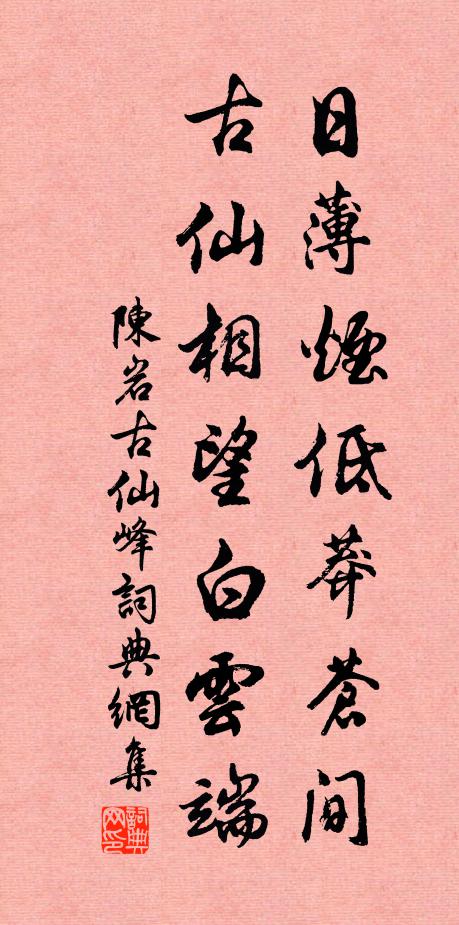 日薄煙低莽蒼间
古仙相望白雲端
陳岩古仙峰詞典網集
詞典网印